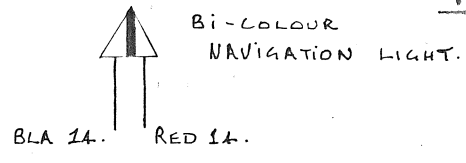 Bi-COLOUR
NAVIGATION LIGHT.
BLA 14. RED 14.